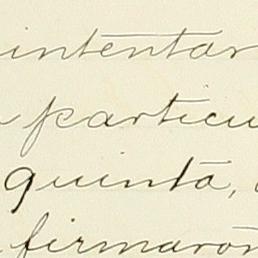 intentar
particu
quinta,
firmaron